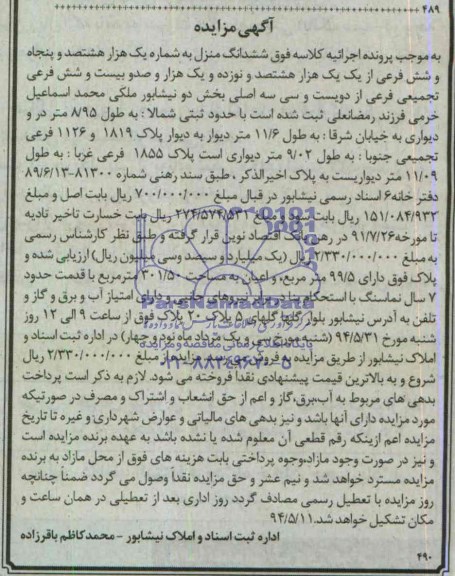 ۴۸۹
آگهی مزایده
به موجب پرونده اجرائیه کلاسه فوق ششدانگ منزل به شماره یک هزار هشتصد و پنجاه
و شش فرعی از یک یک هزار هشتصد و نوزده و یک هزار و صدو بیست و شش فرعی
تجمیعی فرعی از دویست و سی سه اصلی بخش دو نیشابور ملکی محمد اسماعیل
خرمی فرزند رمضانعلی ثبت شده است با حدود ثبتی شمالا : به طول ۸/۹۵ متر در و
دیواری به خیابان شرقا : به طول ۱۱/۶ متر دیوار به دیوار پلاک ۱۸۱۹ و ۱۱۲۶ فرعی
تجمیعی جنوبا : به طول ۹/۰۲ متر دیواری است پلاک ۱۸۵۵ فرعی غربا : به طول
۱۱/۰۹ متر دیواریست به پلاک اخیرالذکر ، طبق سند رهنی شماره ۸۱۳۰۰-۸۹/۶/۱۳
دفتر خانه ۶ اسناد رسمی نیشابور در قبال مبلغ ۷۰۰/۰۰۰/۰۰۰ ریال بابت اصل و مبلغ
۱۵۱/۰۸۴/۹۳۲ ریال بابت سود و مبلغ ۲۷۴/۵۷۴/۵۳۱ ریال بابت خسارت تاخیر تادیه
تا مورخه ۹۱/۷/۲۶ در رهن بانک اقتصاد نوین قرار گرفته و طبق نظر کارشناس رسمی
به مبلغ ۲/۳۳۰/۰۰۰/۰۰۰ ریال (یک میلیارد و سیصد وسی میلیون ریال) ارزیابی شده و
پلاک فوق دارای ۹۹/۵ متر مربع، و اعیان به مساحت ۳۰۱/۵۰ مترمربع با قدمت حدود
۷ سال نماسنگ با استحکام بنا در برابر نیروهای جانبی و دارای امتیاز آب و برق و گاز و
تلفن به آدرس نیشابور بلوار گلها گلهای ۵ پلاک ۲۰ پلاک فوق از ساعت ۹ الی ۱۲ روز
شنبه مورخ ۹۴/۵/۳۱ (شنبه مورخ سی و یک مرداد ماه نود و چهار) در اداره ثبت اسناد و
املاک نیشابور از طریق مزایده به فروش می رسد مزایده از مبلغ ۲/۳۳۰/۰۰۰/۰۰۰ ریال
شروع و به بالاترین قیمت پیشنهادی نقدا فروخته می شود. لازم به ذکر است پرداخت
بدهی های مربوط به آب،برق،گاز و اعم از حق انشعاب و اشتراک و مصرف در صورتیکه
مورد مزایده دارای آنها باشد و نیز بدهی های مالیاتی و عوارض شهرداری و غیره تا تاریخ
مزایده اعم ازینکه رقم قطعی آن معلوم شده یا نشده باشد به عهده برنده مزایده است
و نیز در صورت وجود مازاد،وجوه پرداختی بابت هزینه های فوق از محل مازاد به برنده
مزایده مسترد خواهد شد و نیم عشر و حق مزایده نقداً وصول می گردد ضمناً چنانچه
روز مزایده با تعطیل رسمی مصادف گردد روز اداری بعد از تعطیلی در همان ساعت و
مکان تشکیل خواهد شد.۹۴/۵/۱۱
اداره ثبت اسناد و املاک نیشابور - محمدکاظم باقرزاده
۴۹۰